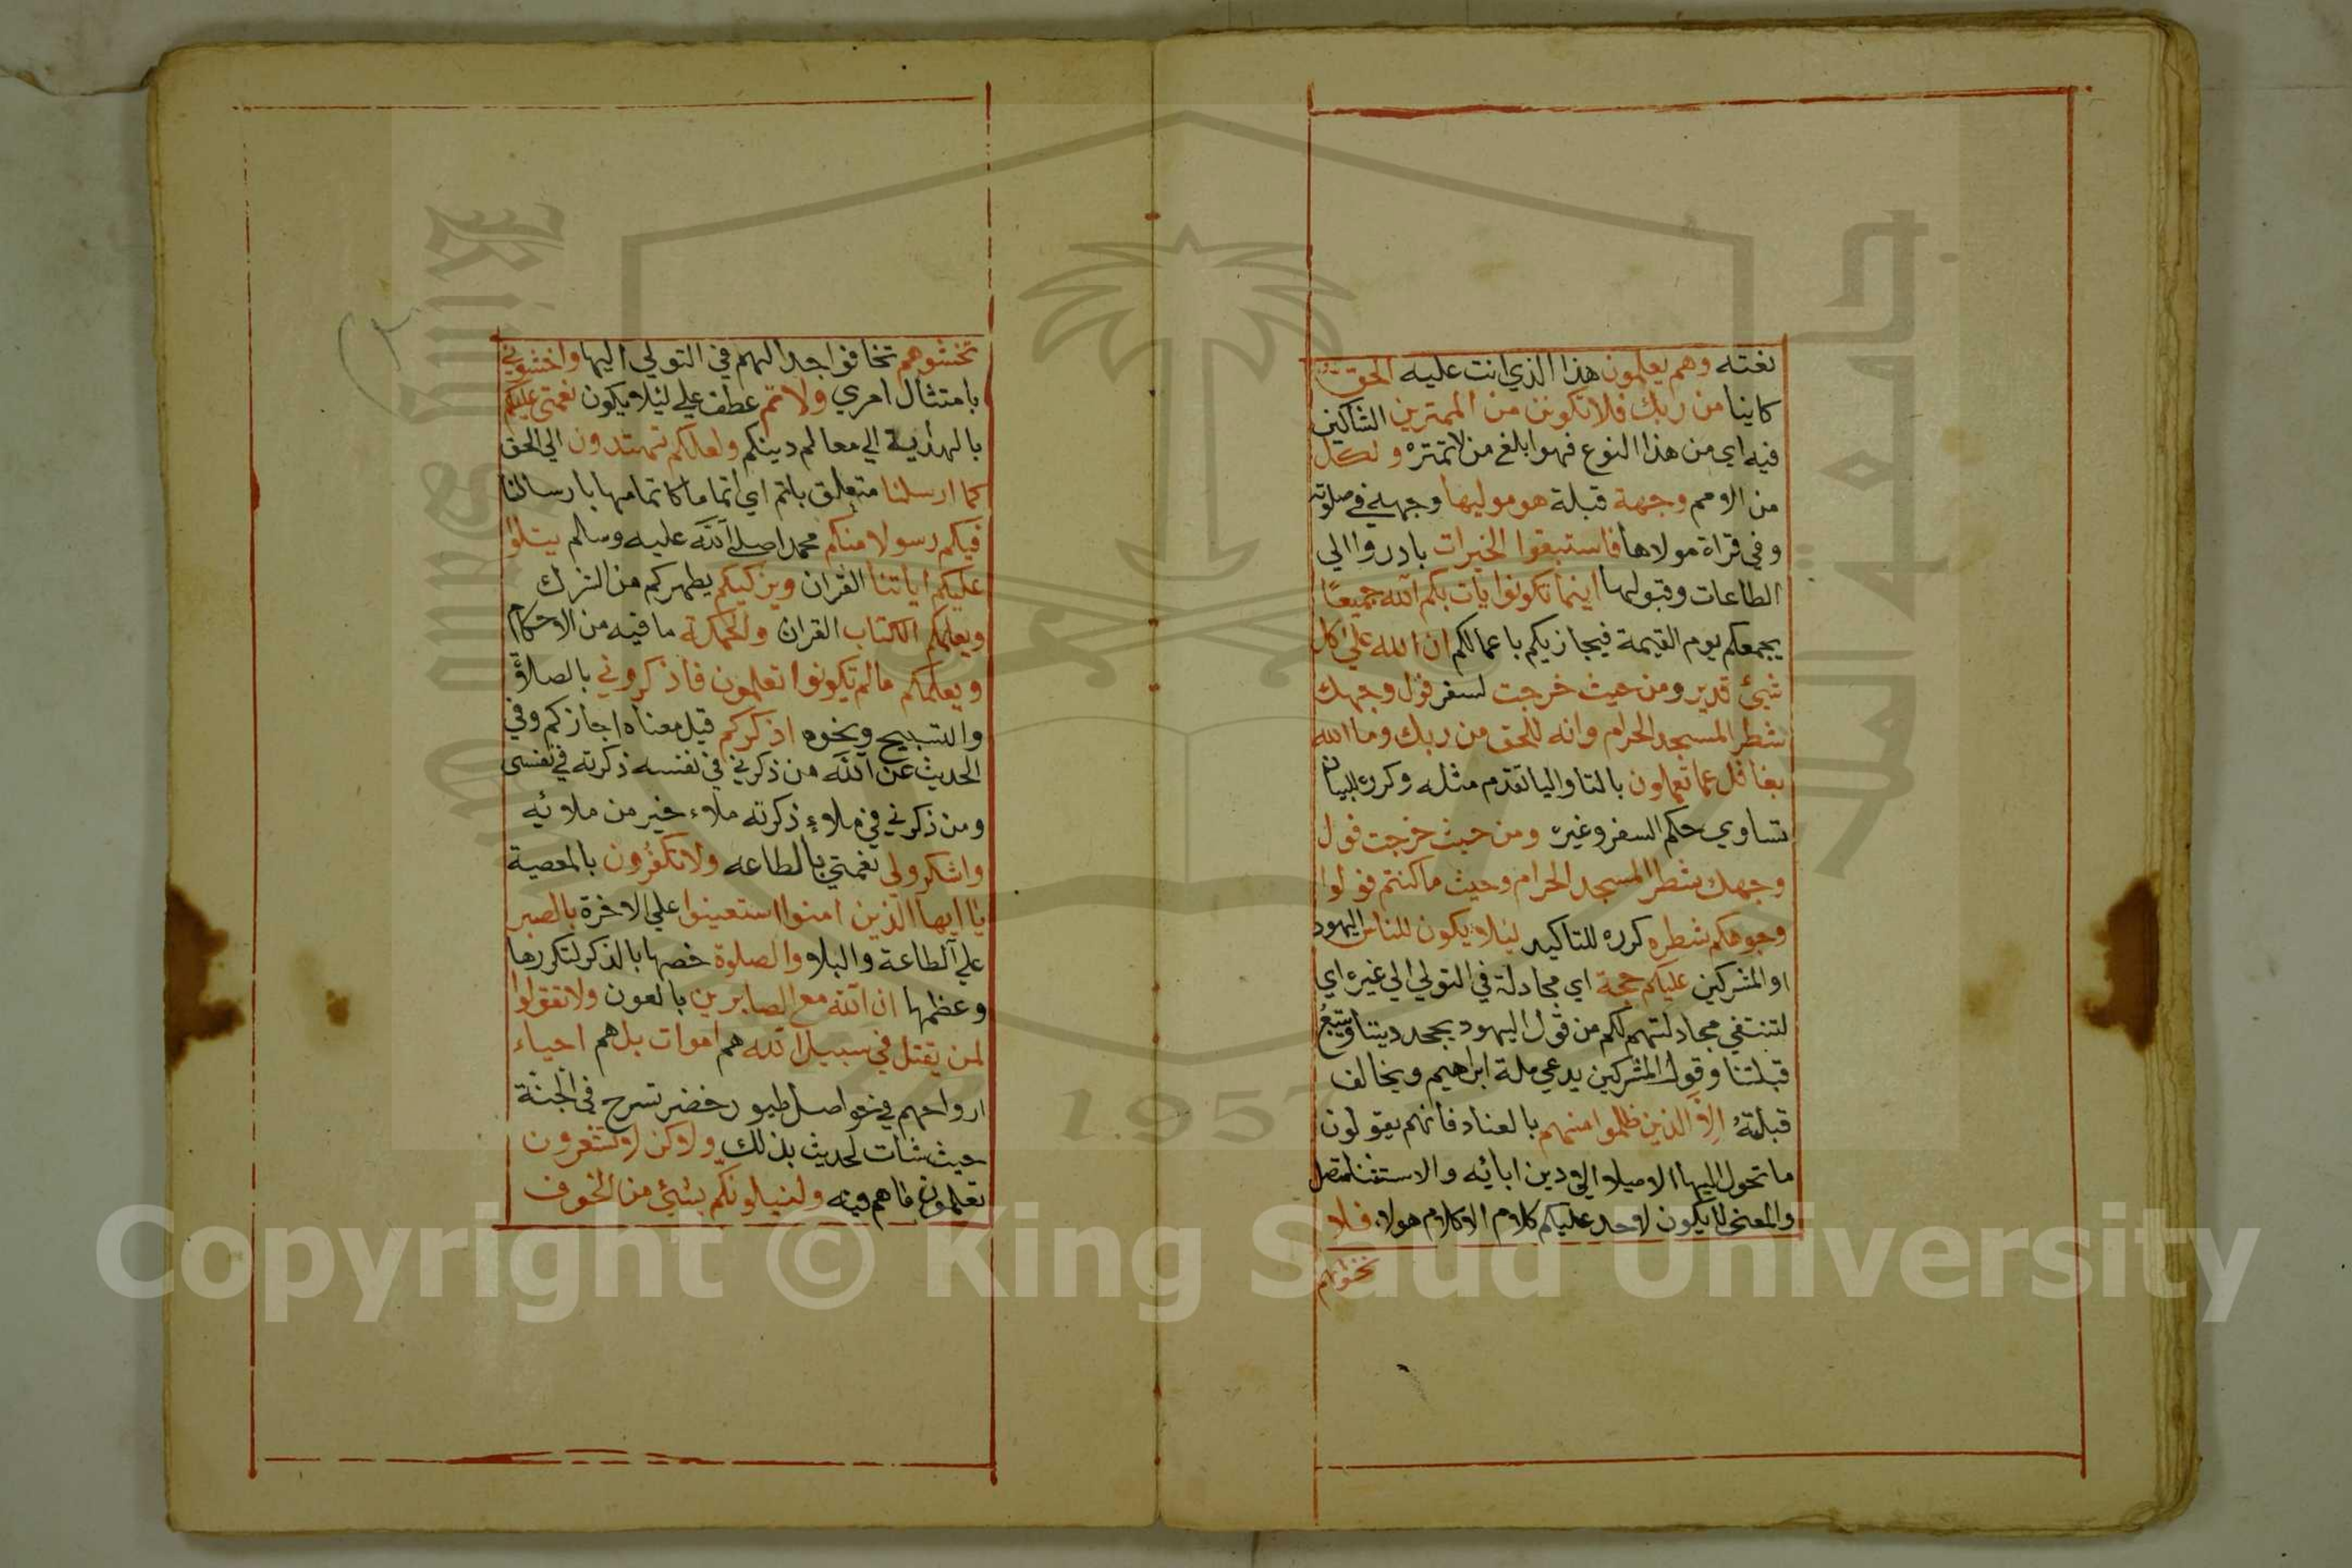 نعته وهم يعلمون هذا الذي انت عليه الحق
كاينا من ربك فلا تكونن من الممترين الشاكين
فيه اي من هذا النوع فهو ابلغ من لا تمتره ولكل
من الامم وجهة قبلة هو موليها وجهه في صلوته
وفي قراة مولاها فاستبقوا الخيرات بادروا الي
الطاعات وقبولها اينما تكونوا يات بكم الله جميعا
يجمعكم يوم القيمة فيجازيكم باعمالكم ان الله علي كل
شيئ قدير ومن حيث خرجت لسفر فول وجهك
شطر المسجد الحرام وانه للحق من ربك وما الله
بغافل عما تعملون بالتا واليا تقدم مثله وكرره لبيان
تساوي حكم السفر وغيره ومن حيث خرجت فول
وجهك شطر المسجد الحرام وحيث ما كنتم فولوا
وجوهكم شطره كرره للتاكيد ليلا يكون للناس اليهود
او المشركين عليكم حجة اي مجادلة في التولي الي غيره اي
لتنتفي مجادلتهم لكم من قول اليهود يجحد ديننا ويتبع
قبلتنا وقول المشركين يدعي ملة ابراهيم ويخالف
قبلته الا الذين ظلموا منهم بالعناد فانهم يقولون
ما تحول اليها الا ميلا الي دين ابائه والاستثنا متصل
والمعني لا يكون لاحد عليكم كلام الا كلام هولاء فلا
تخشوهم
تخشوهم تخافوا جدالهم في التولي اليها واخشوني
بامتثال امري ولاتم عطف علي ليلا يكون نعمتي عليكم
بالهداية الي معالم دينكم ولعلكم تهتدون الي الحق
كما ارسلنا متعلق باتم اي اتماما كاتمامها بارسالنا
فيكم رسولا منكم محمدا صلي الله عليه وسلم يتلوا
عليكم اياتنا القران ويزكيكم يطهركم من الشرك
ويعلمكم الكتاب القران والحكمة ما فيه من الاحكام
ويعلمكم مالم تكونوا تعلمون فاذكروني بالصلاة
والتسبيح ونحوه اذكركم قيل معناه اجازكم وفي
الحديث عن الله من ذكرني في نفسه ذكرته في نفسي
ومن ذكرني في ملاء ذكرته ملاء خير من ملائه
واشكرولي نعمتي بالطاعه ولا تكفرون بالمعصية
يا ايها الذين امنوا استعينوا علي الاخرة بالصبر
علي الطاعة والبلا والصلوة خصها بالذكر لتكررها
وعظمها ان الله مع الصابرين بالعون ولا تقولوا
لمن يقتل في سبيل الله هم اموات بل هم احياء
ارواحهم في حواصل طيور خضر تسرح في الجنة
حيث شات لحديث بذلك ولاكن لا تشعرون
تعلمون ما هم فيه ولنبلونكم بشيئ من الخوف
1957
Copyright © King Saud University